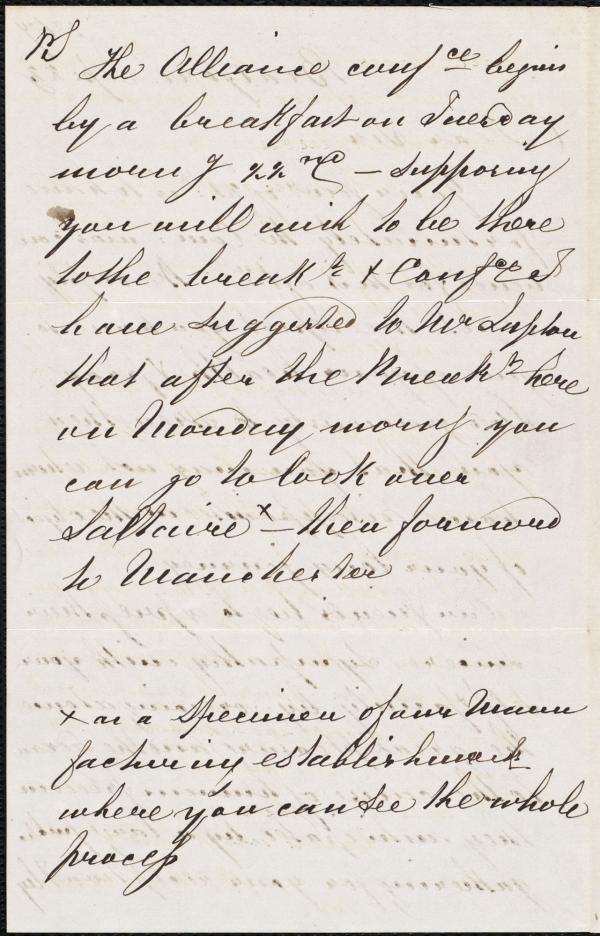 PS
The Alliance conf ce begins
by a breakfast on Tuesday
morng 22nd – supposing
you will wish to be there
to the break t + Conf ce I
have suggested to Mr Lupton
that after the Break t here
on Monday morng you
can go to look over
Saltaire x – then forward
to Manchester
x as a specimen of our Manu
facturing establishments
where you can see the whole
process